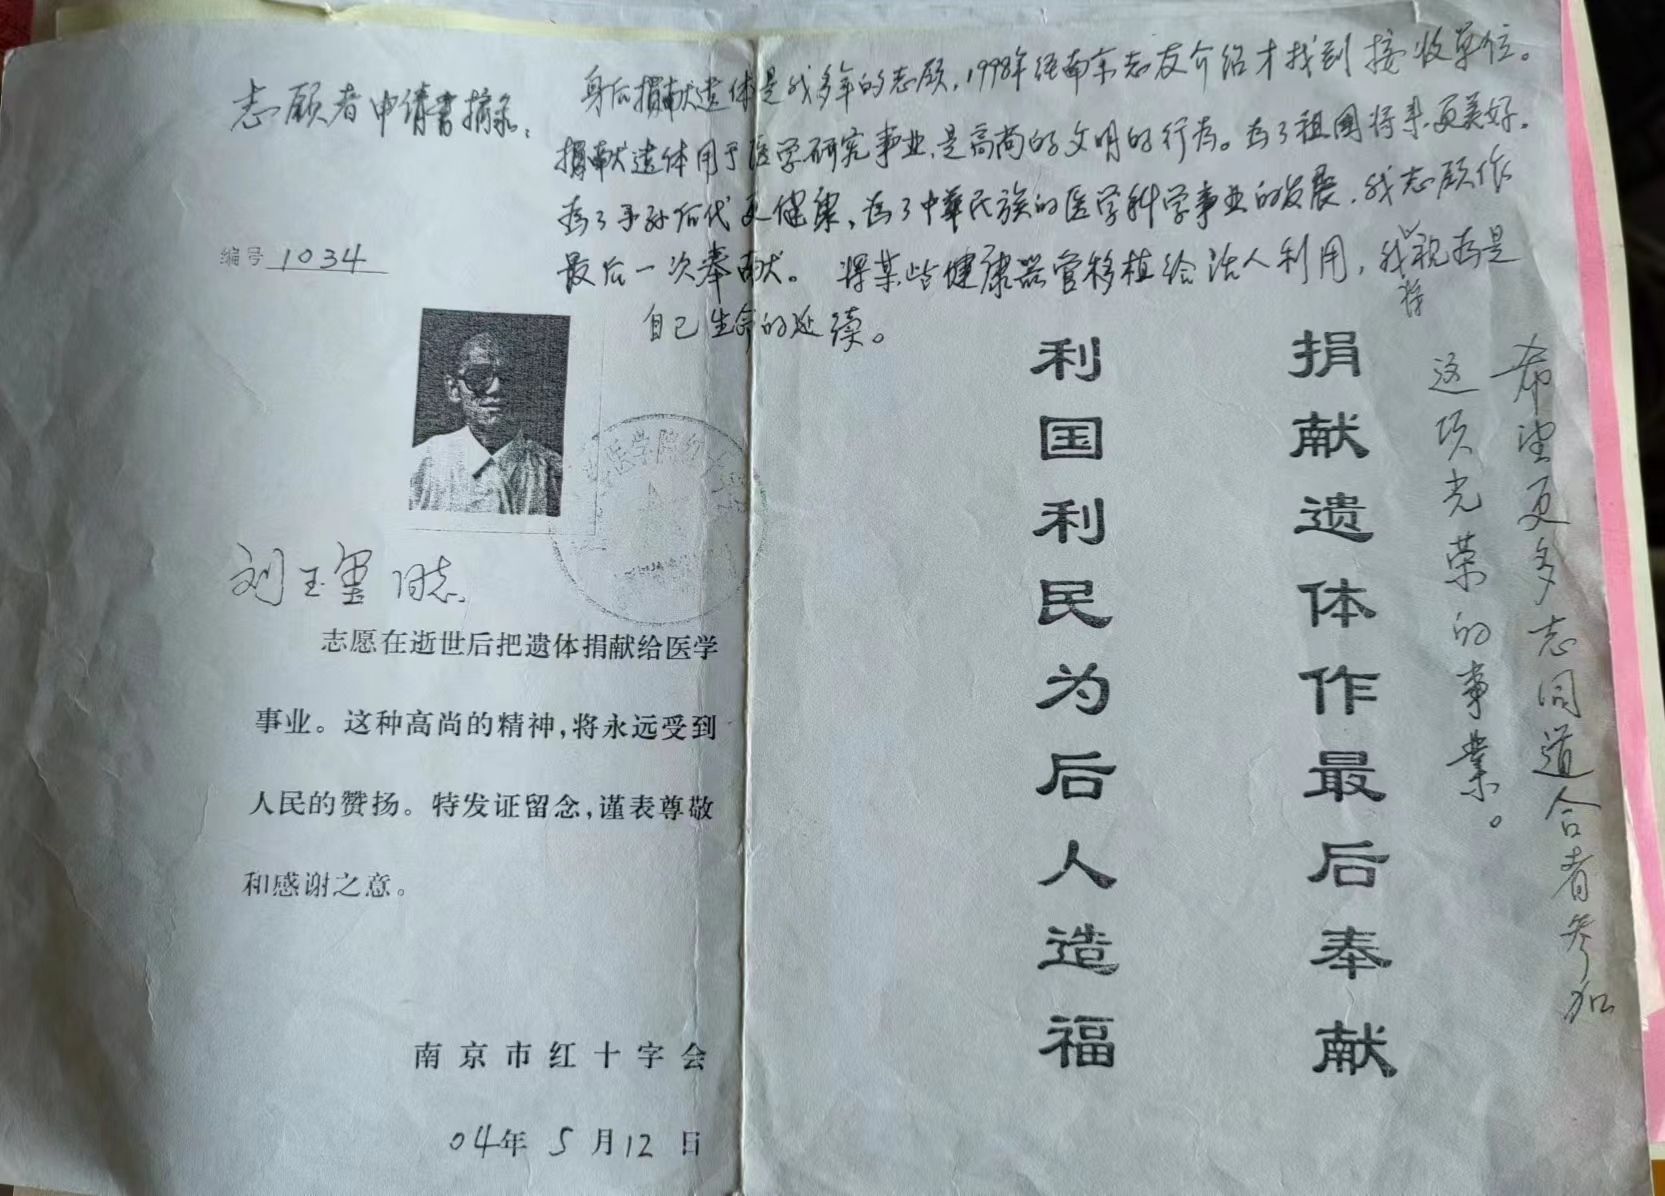 志愿者申请书摘录：
身后捐献遗体是我多年的志愿，1998年经南京志友介绍才找到接收单位。
捐献遗体用于医学研究事业，是高尚的文明的行为。为了祖国将来更美好，
为了子孙后代更健康，为了中華民族的医学科学事业的发展，我志愿作
最后一次奉献。将某些健康器官移植给活人利用，我将视为是
自己生命的延续。
希望更多志同道合者参加
这项光荣的事業。
编号 1034
医学院红十字
刘玉玺同志
志愿在逝世后把遗体捐献给医学
事业。这种高尚的精神，将永远受到
人民的赞扬。特发证留念，谨表尊敬
和感谢之意。
南京市红十字会
04年5月12日
捐献遗体作最后奉献
利国利民为后人造福